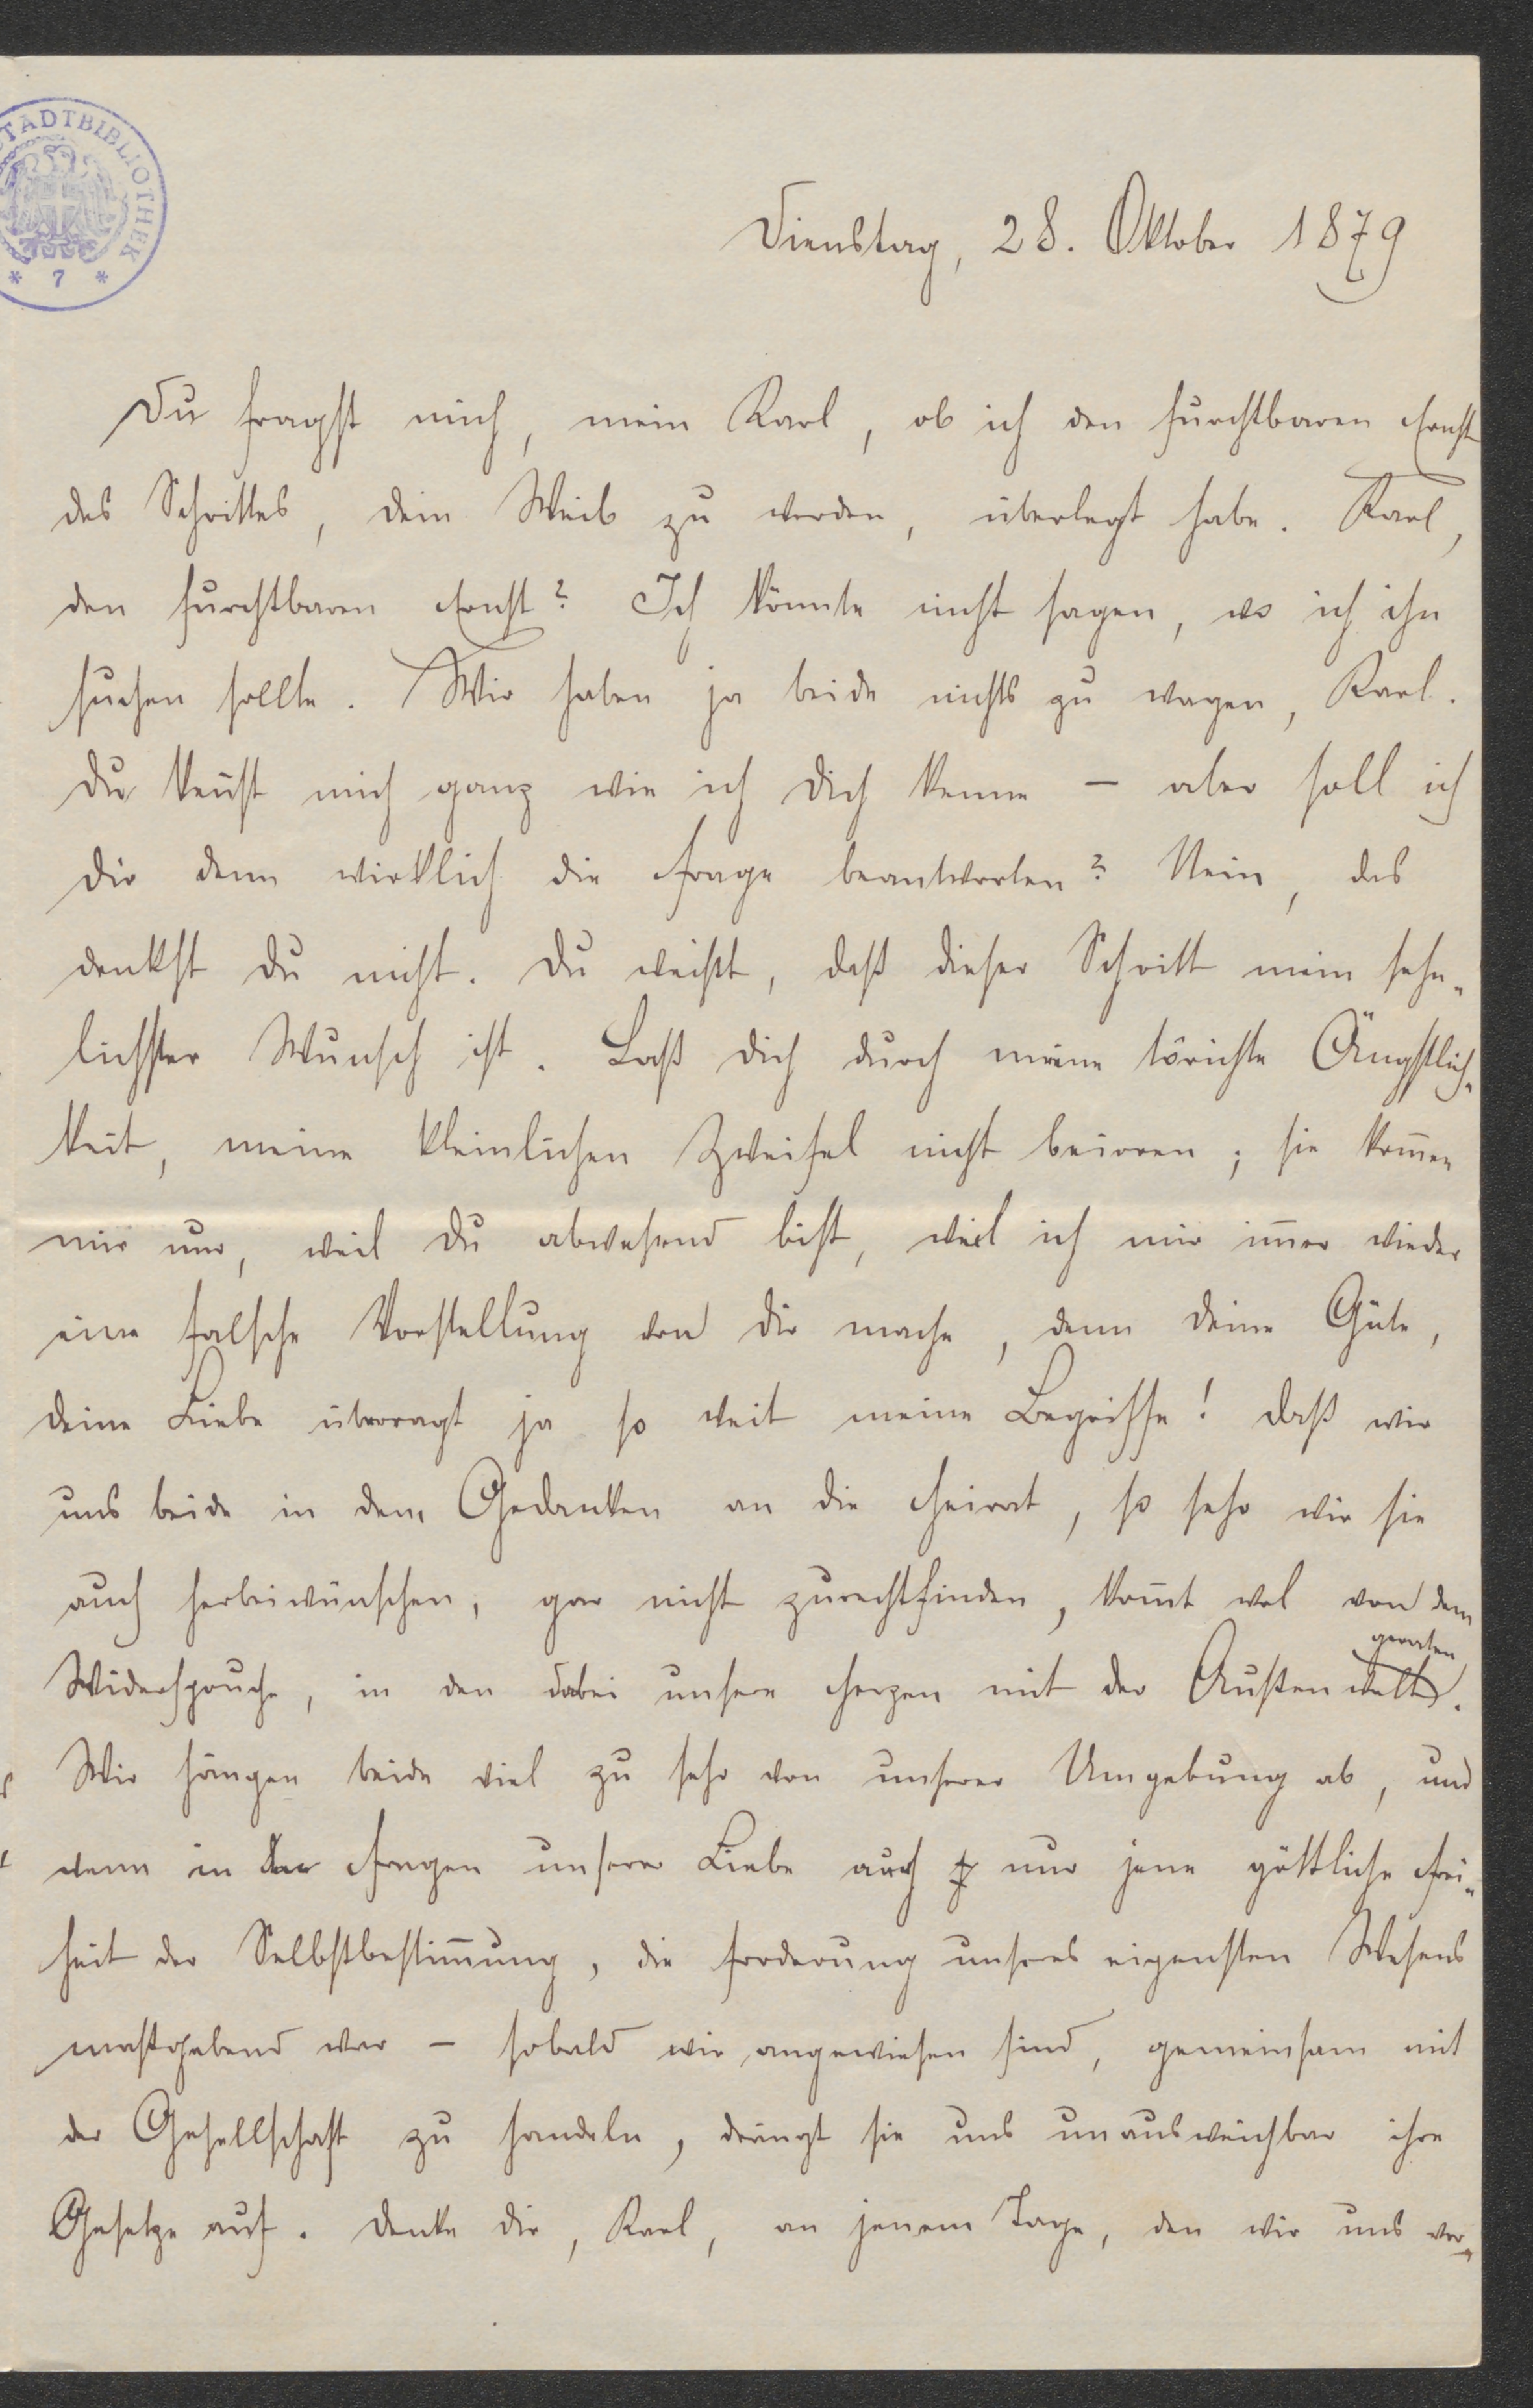 STADTBIBLIOTHEK
* 7 *
Dienstag, 28. Oktober 1879
Du fragst mich, mein Karl, ob ich den furchtbaren Ernst
des Schrittes, dein Weib zu werden, überlegt habe. Karl,
den furchtbaren Ernst? Ich könnte nicht sagen, wo ich ihn
suchen sollte. Wir haben ja beide nichts zu wagen, Karl.
Du kennst mich ganz wie ich Dich kenne – aber soll ich
dir denn wirklich die Frage beantworten? Nein, das
denkst du nicht. Du weißt, daß dieser Schritt mein sehn-
lichster Wunsch ist. Laß dich durch meine törichte Ängstlich-
keit, meine kleinlichen Zweifel nicht beirren; sie kom̄en
mir nur, weil du abwesend bist, weil ich mir im̄er wieder
eine falsche Vorstellung von dir mache, denn deine Güte,
deine Liebe überragt ja so weit meine Begriffe! Daß wir
uns beide in dem Gedanken an die Heirat, so sehr wir sie
auch herbeiwünschen, gar nicht zurechtfinden, kom̄t wol von dem
Widerspruche, in den dabei unsere Herzen mit der Außenwelt geraten.
Wir hängen beide viel zu sehr von unserer Umgebung ab, und
wenn in den Fragen unserer Liebe auch nur jene göttliche Frei-
heit der Selbstbestim̄ung, die Forderung unseres eigensten Wesens
maßgebend war – sobald wir angewiesen sind, gemeinsam mit
der Gesellschaft zu handeln, drängt sie uns unausweichbar ihre
Gesetze auf. Denke dir, Karl, an jenem Tage, den wir uns ver-